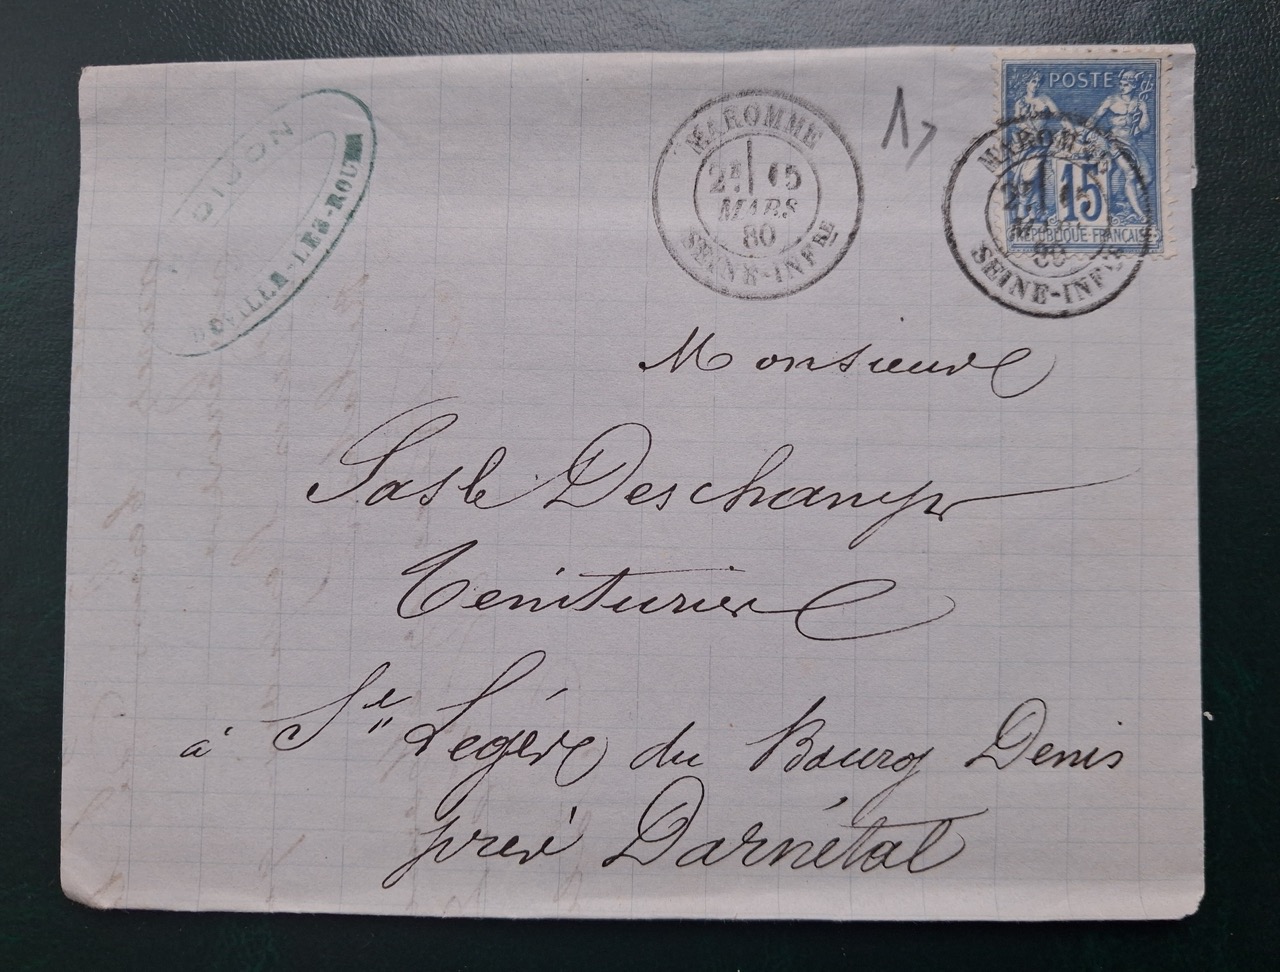 DIJON
BOVILLE-LES-ROUEN
MAROMME
2E 15
MARS
80
SEINE-INFRE
POSTE
15
REPUBLIQUE FRANCAISE
MAROMME
2E 15
MARS
80
SEINE-INFRE
Monsieur
Deschamps
Teinturier
à St Légér du Bourg Denis
près Darnétal